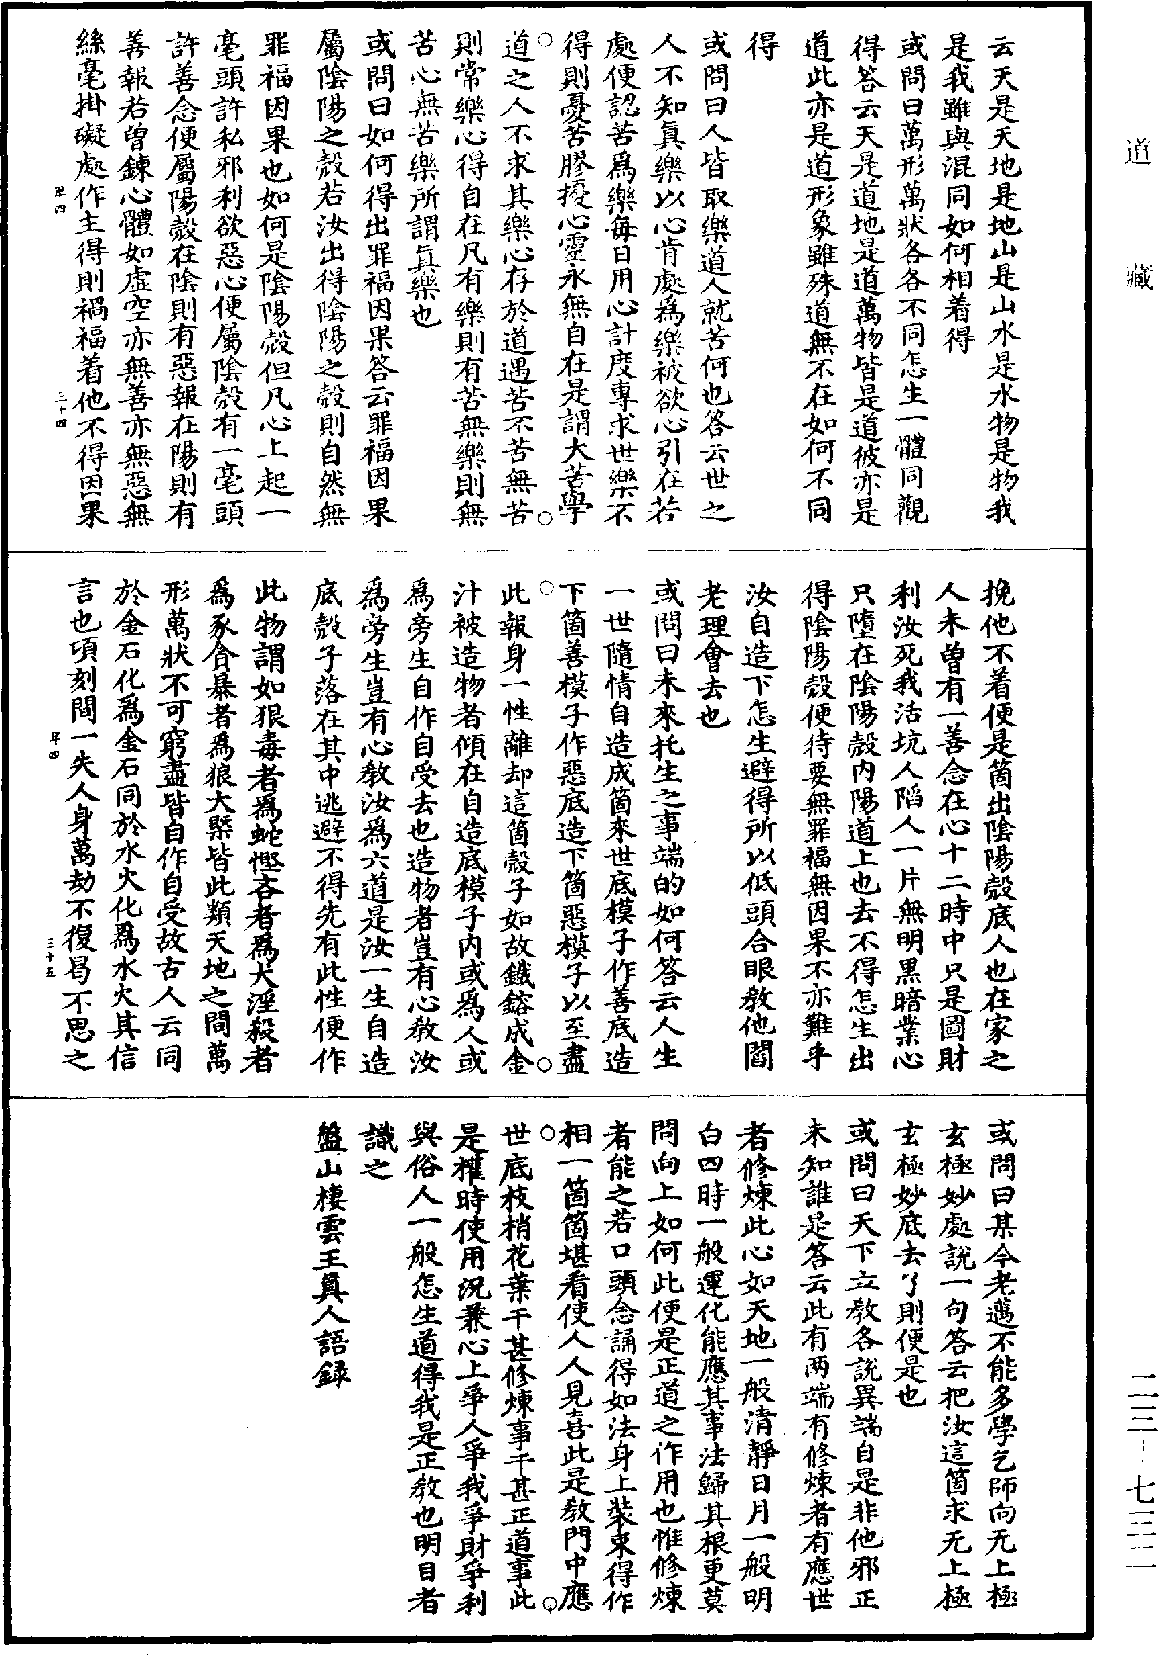 云天是天地是地山是山水是水物是物我
是我雖與混同如何相着得
或問曰萬形萬狀各各不同怎生一體同觀
得答云天是道地是道萬物皆是道彼亦是
道此亦是道形象雖殊道無不在如何不同
得
或問曰人皆取樂道人就苦何也答云世之
人不知真樂以心肯處為樂被欲心引在若
處便認苦為樂每日用心計度專求世樂不
得則憂苦膠擾心靈永無自在是謂大苦學
道之人不求其樂心存於道遇苦不苦無苦
則常樂心得自在凡有樂則有苦無樂則無
苦心無苦樂所謂真樂也
或問曰如何得出罪福因果答云罪福因果
屬陰陽之殼若汝出得陰陽之殼則自然無
罪福因果也如何是陰陽殼但凡心上起一
毫頭許私邪利欲惡心便屬陰殼有一毫頭
許善念便屬陽殼在陰則有惡報在陽則有
善報若曾鍊心體如虛空亦無善亦無惡無
絲毫掛礙處作主得則禍福着他不得因果
草四
三十四
挽他不着便是箇出陰陽殼底人也在家之
人未曾有一善念在心十二時中只是圖財
利汝死我活坑人陷人一片無明黑暗業心
只墮在陰陽殼內陽道上也去不得怎生出
得陰陽殼便待要無罪福無因果不亦難乎
汝自造下怎生避得所以低頭合眼教他閻
老理會去也
或問曰未來托生之事端的如何答云人生
一世隨情自造成箇來世底模子作善底造
下箇善模子作惡底造下箇惡模子以至盡
此報身一性離却這箇殼子如故鐵鎔成金
汁被造物者傾在自造底模子內或為人或
為旁生自作自受去也造物者豈有心教汝
為旁生豈有心教汝為六道是汝一生自造
底殼子落在其中逃避不得先有此性便作
此物謂如狠毒者為蛇慳吝者為犬淫殺者
為豕貪暴者為狼大槩皆此類天地之間萬
形萬狀不可窮盡皆自作自受故古人云同
於金石化為金石同於水火化為水火其信
言也頃刻間一失人身萬劫不復曷不思之
草四
三十五
或問曰某今老邁不能多學乞師向无上極
玄極妙處說一句答云把汝這箇求无上極
玄極妙底去了則便是也
或問曰天下立教各說異端自是非他邪正
未知誰是答云此有两端有修煉者有應世
者修煉此心如天地一般清靜日月一般明
白四時一般運化能應其事法歸其根更莫
問向上如何此便是正道之作用也惟修煉
者能之若口頭念誦得如法身上裝束得作
相一箇箇堪看使人人見喜此是教門中應
世底枝梢花葉干甚修煉事干甚正道事此
是權時使用況兼心上爭人爭我爭財爭利
與俗人一般怎生道得我是正教也明目者
識之
盤山棲雲王真人語錄
道藏
二三-七三二